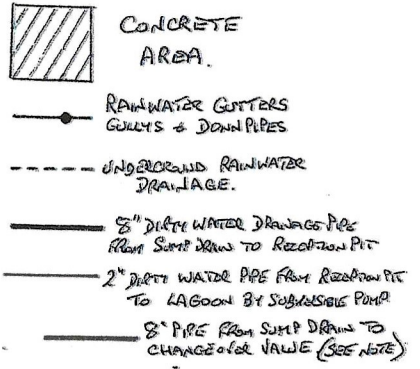 CONCRETE
AREA.
RAINWATER GUTTERS
GULLYS & DOWNPIPES
UNDERGROUND RAINWATER
DRAINAGE.
8" DIRTY WATER DRAINAGE PIPE
FROM SUMP DRAIN TO RECEPTION PIT
2" DIRTY WATER PIPE FROM RECEPTION PIT
TO LAGOON BY SUBMERSIBLE PUMP
8" PIPE FROM SUMP DRAIN TO
CHANGEOVER VALVE (SEE NOTE)